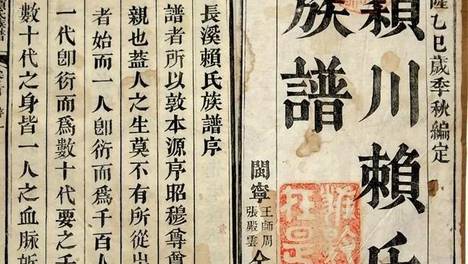 隆乙巳歲季秋編定
穎川賴氏
族譜
閩寧
王師周
張殿雲
仝
長溪賴氏族譜序
譜者所以敦本源序昭穆尊尊
親也蓋人之生莫不有所從出
者始而一人卽衍而爲千百人
一代卽衍而爲數十代要之千
數十代之身皆一人之血脈